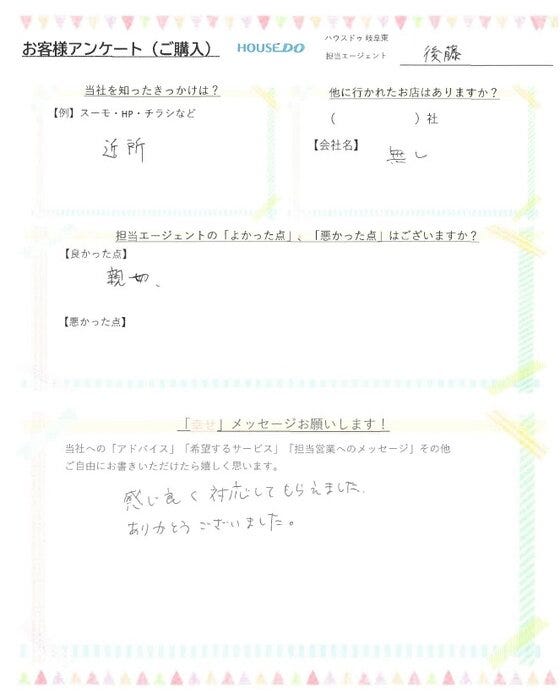 お客様アンケート（ご購入）
HOUSEDO
ハウスドゥ 岐阜東
担当エージェント 後藤
当社を知ったきっかけは？
【例】スーモ・HP・チラシなど
近所
他に行かれたお店はありますか？
（　　　　）社
【会社名】
無し
担当エージェントの「よかった点」、「悪かった点」はございますか？
【良かった点】
親切、
【悪かった点】
「幸せ」メッセージお願いします！
当社への「アドバイス」「希望するサービス」「担当営業へのメッセージ」その他
ご自由にお書きいただけたら嬉しく思います。
感じ良く対応してもらえました。
ありがとうございました。